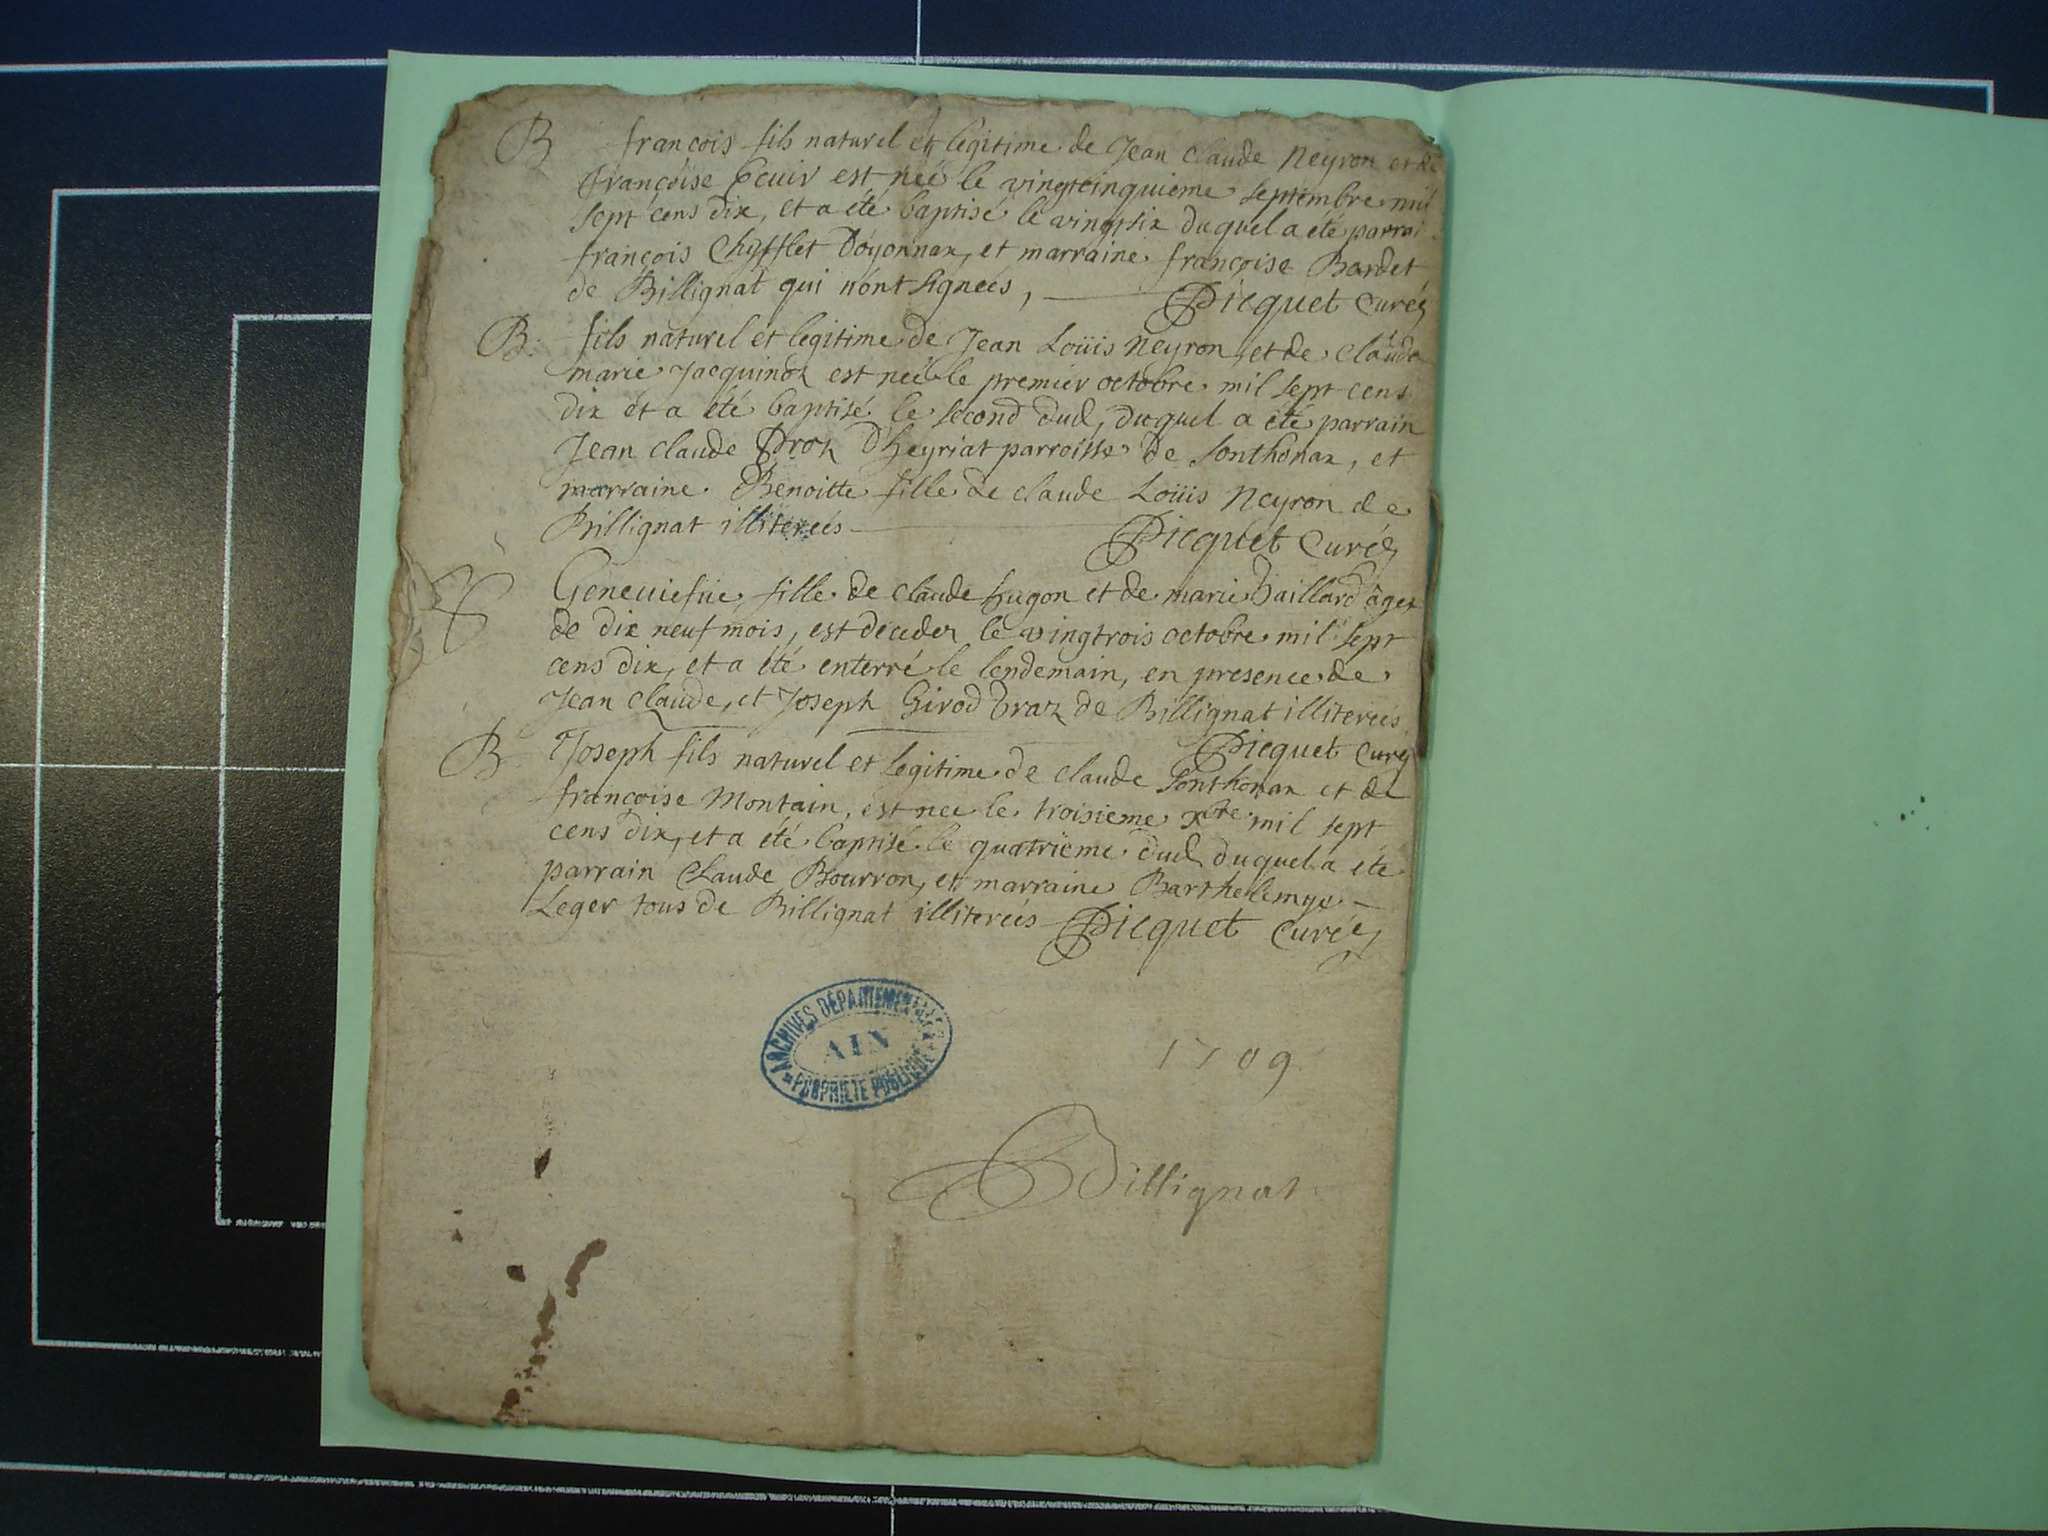 B francois fils naturel et legitime de Jean claude Neyron et de
francoise Ecuir est neé le vingtcinquieme septembre mil
sept cens dix, et a eté baptisé le vingtsix duquel a été parrai
françois Chyfflet Doyonnax, et marraine françoise Bardet
de Billignat qui nont signeés, Picquet Curé
B. fils naturel et legitime de Jean Loüis Neyron, et de claude
marie Jacquinod est neé le premier octobre mil sept cens
dix et a eté baptisé le second dud, duquel a été parrain
Jean claude Droz d'heyriat parroisse de Sonthonax, et
marraine Benoitte fille de claude Loüis Neyron de
Billignat illitereés Picquet Curé
Geneuiefue fille de claude hugon et de marie Baillard agez
de dix neuf mois, est decedez le vingtrois octobre mil sept
cens dix, et a été enterré le lendemain, en presence de
Jean claude, et Joseph Girod traz de Billignat illitereés
Picquet Curé
B. Joseph fils naturel et legitime de claude Sonthonax et de
françoise Montain, est nee le troisieme xbre mil sept
cens dix, et a été baptisé le quatrïeme dud duquel a eté
parrain Claude Bourron, et marraine Barthelemye
Leger tous de Billignat illitereés Picquet Curé
ARCHIVES DÉPARTEMENTALES
AIN
PROPRIÉTÉ PUBLIQUE
1709
Billignat